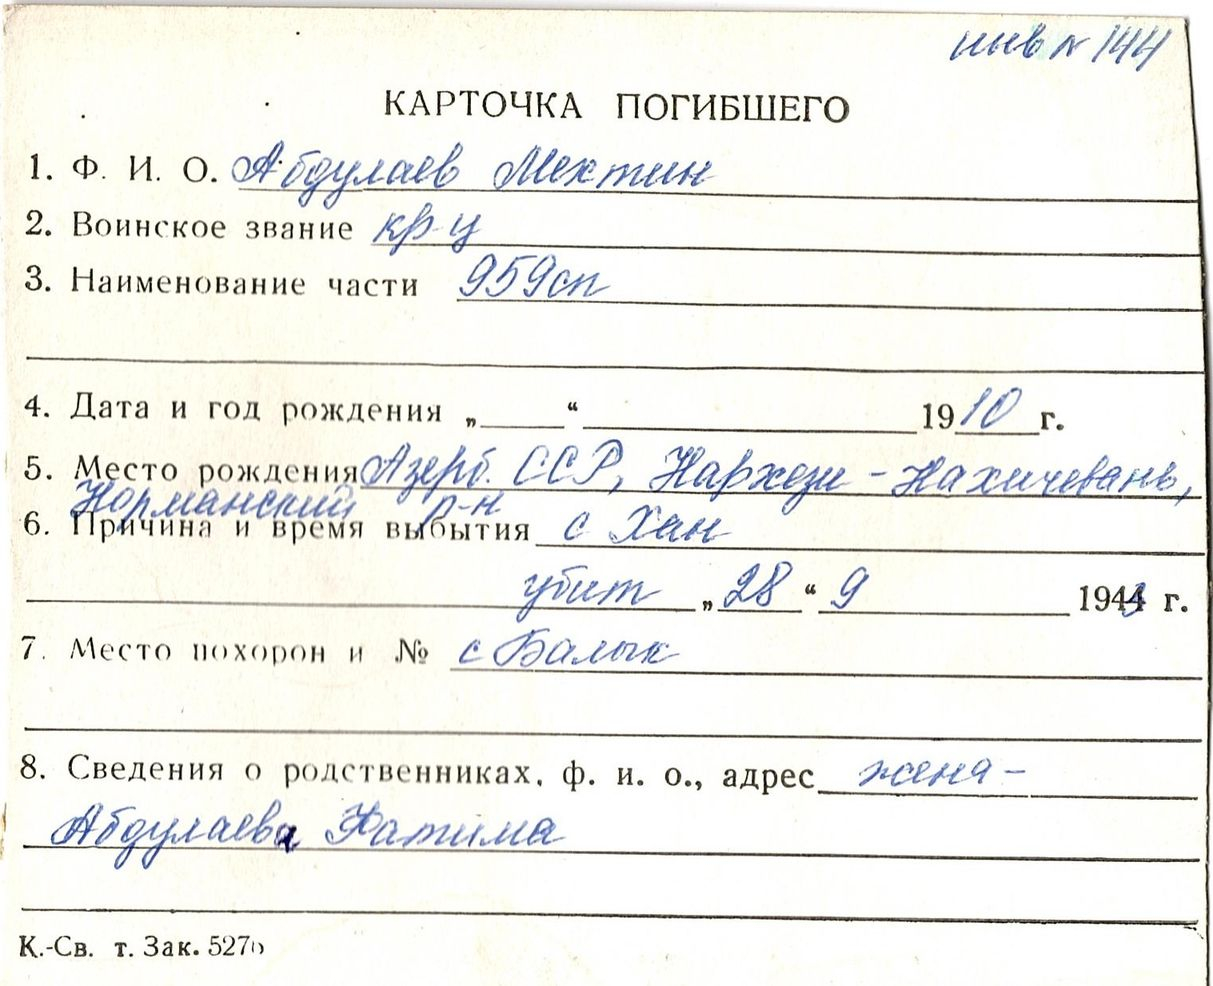 инв № 144
КАРТОЧКА ПОГИБШЕГО
1. Ф. И. О. Абдулаев Мехтин
2. Воинское звание кр-ц
3. Наименование части 959сп
4. Дата и год рождения „ “ 1910 г.
5. Место рождения Азерб. ССР, Нархези - Нахичевань,
Норманский р-н
6. Причина и время выбытия с Хан
убит „28“ 9 1943 г.
7. Место похорон и № с Балык
8. Сведения о родственниках, ф. и. о., адрес жена -
Абдулаева Фатима
К.-Св. т. Зак. 527